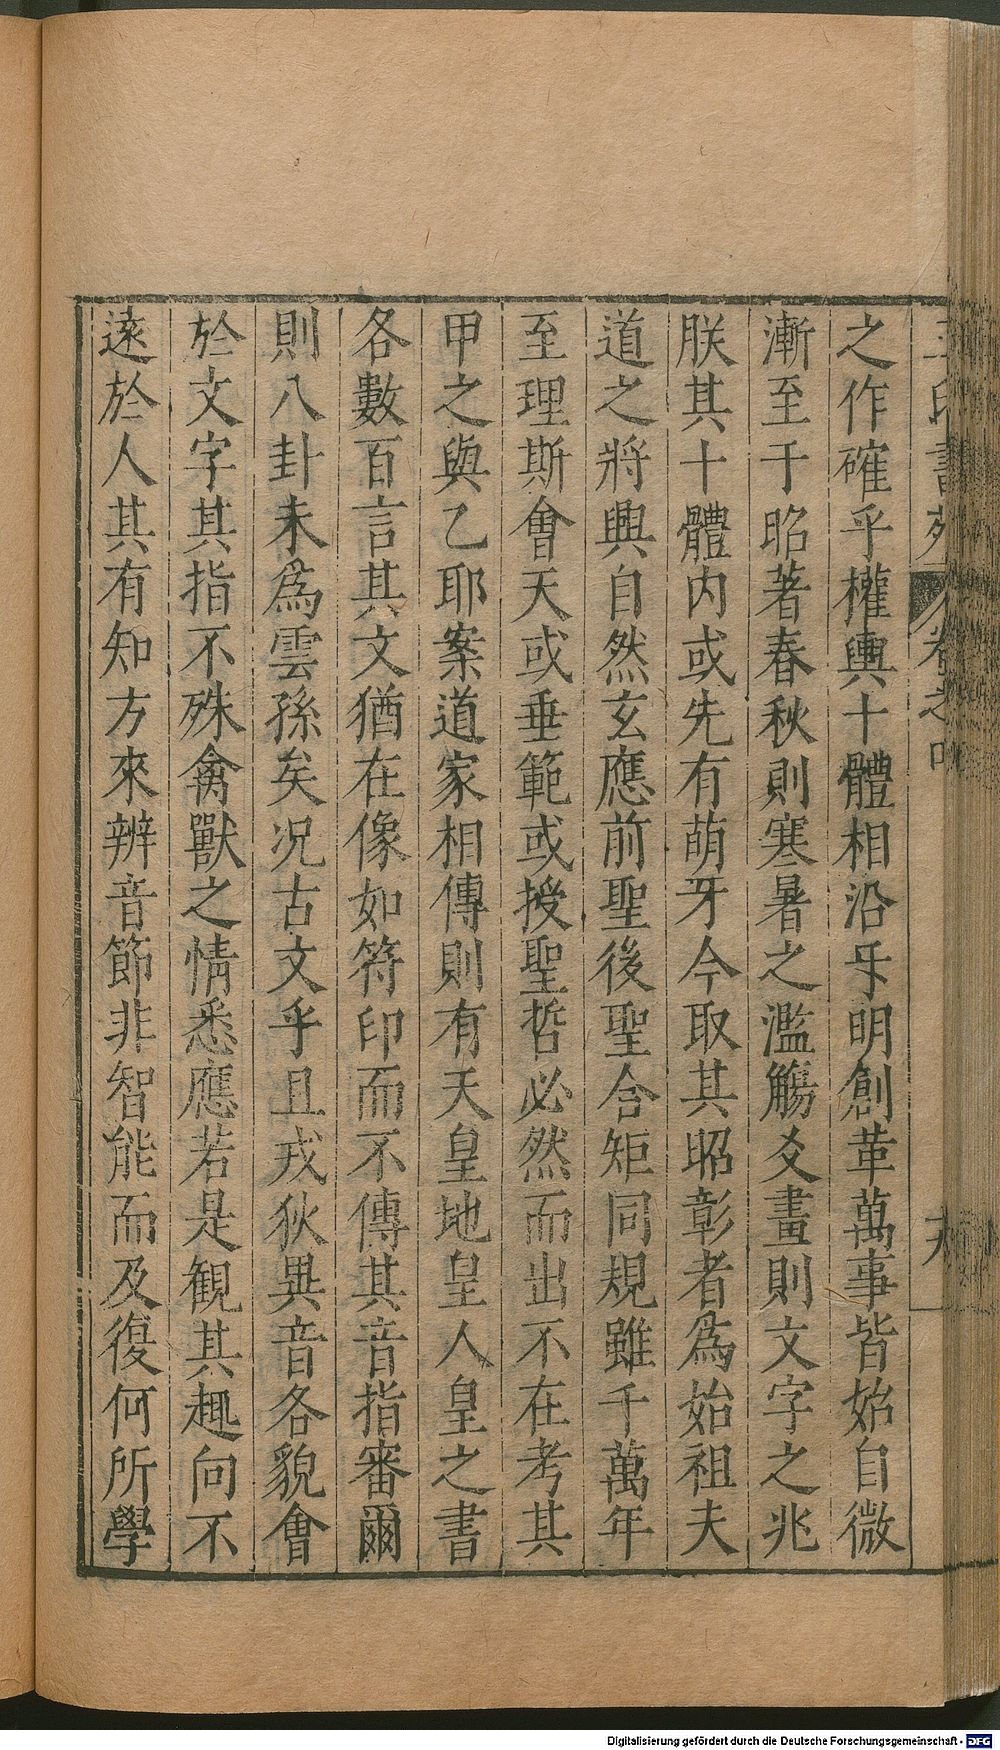 王氏書苑 卷之四 十九
之作確乎權輿十體相沿㸦明創革萬事皆始自微
漸至于昭著春秋則寒暑之濫觴爻畫則文字之兆
朕其十體内或先有萌牙今取其昭彰者為始祖夫
道之將興自然玄應前聖後聖合矩同規雖千萬年
至理斯會天或垂範或授聖哲必然而出不在考其
甲之與乙耶案道家相傳則有天皇地皇人皇之書
各數百言其文猶在像如符印而不傳其音指審爾
則八卦未為雲孫矣况古文乎且戎狄異音各貌會
於文字其指不殊禽獸之情悉應若是觀其趣向不
遠於人其有知方來辨音節非智能而及復何所學
Digitalisierung gefördert durch die Deutsche Forschungsgemeinschaft - DFG